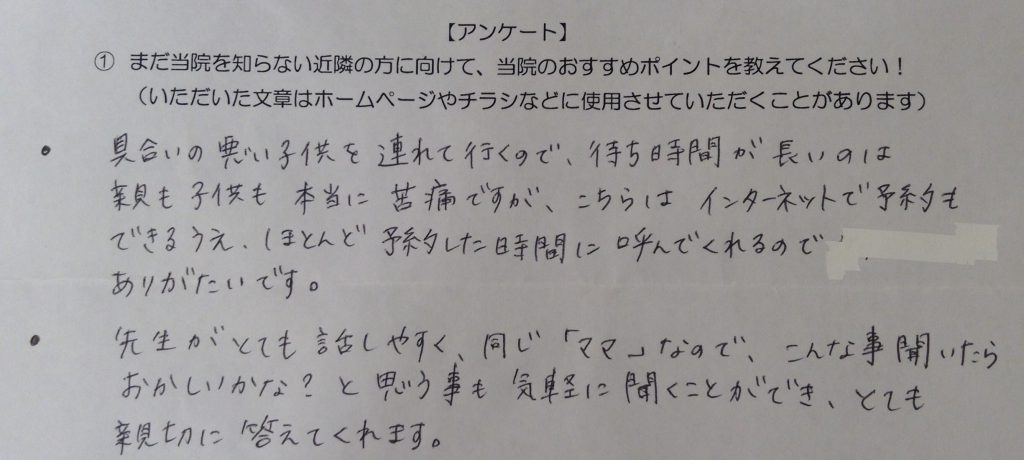 【アンケート】
① まだ当院を知らない近隣の方に向けて、当院のおすすめポイントを教えてください！
（いただいた文章はホームページやチラシなどに使用させていただくことがあります）
・ 具合いの悪い子供を連れて行くので、待ち時間が長いのは
親も子供も本当に苦痛ですが、こちらはインターネットで予約も
できるうえ、ほとんど予約した時間に呼んでくれるので
ありがたいです。
・ 先生がとても話しやすく、同じ「ママ」なので、こんな事聞いたら
おかしいかな？と思う事も気軽に聞くことができ、とても
親切に答えてくれます。